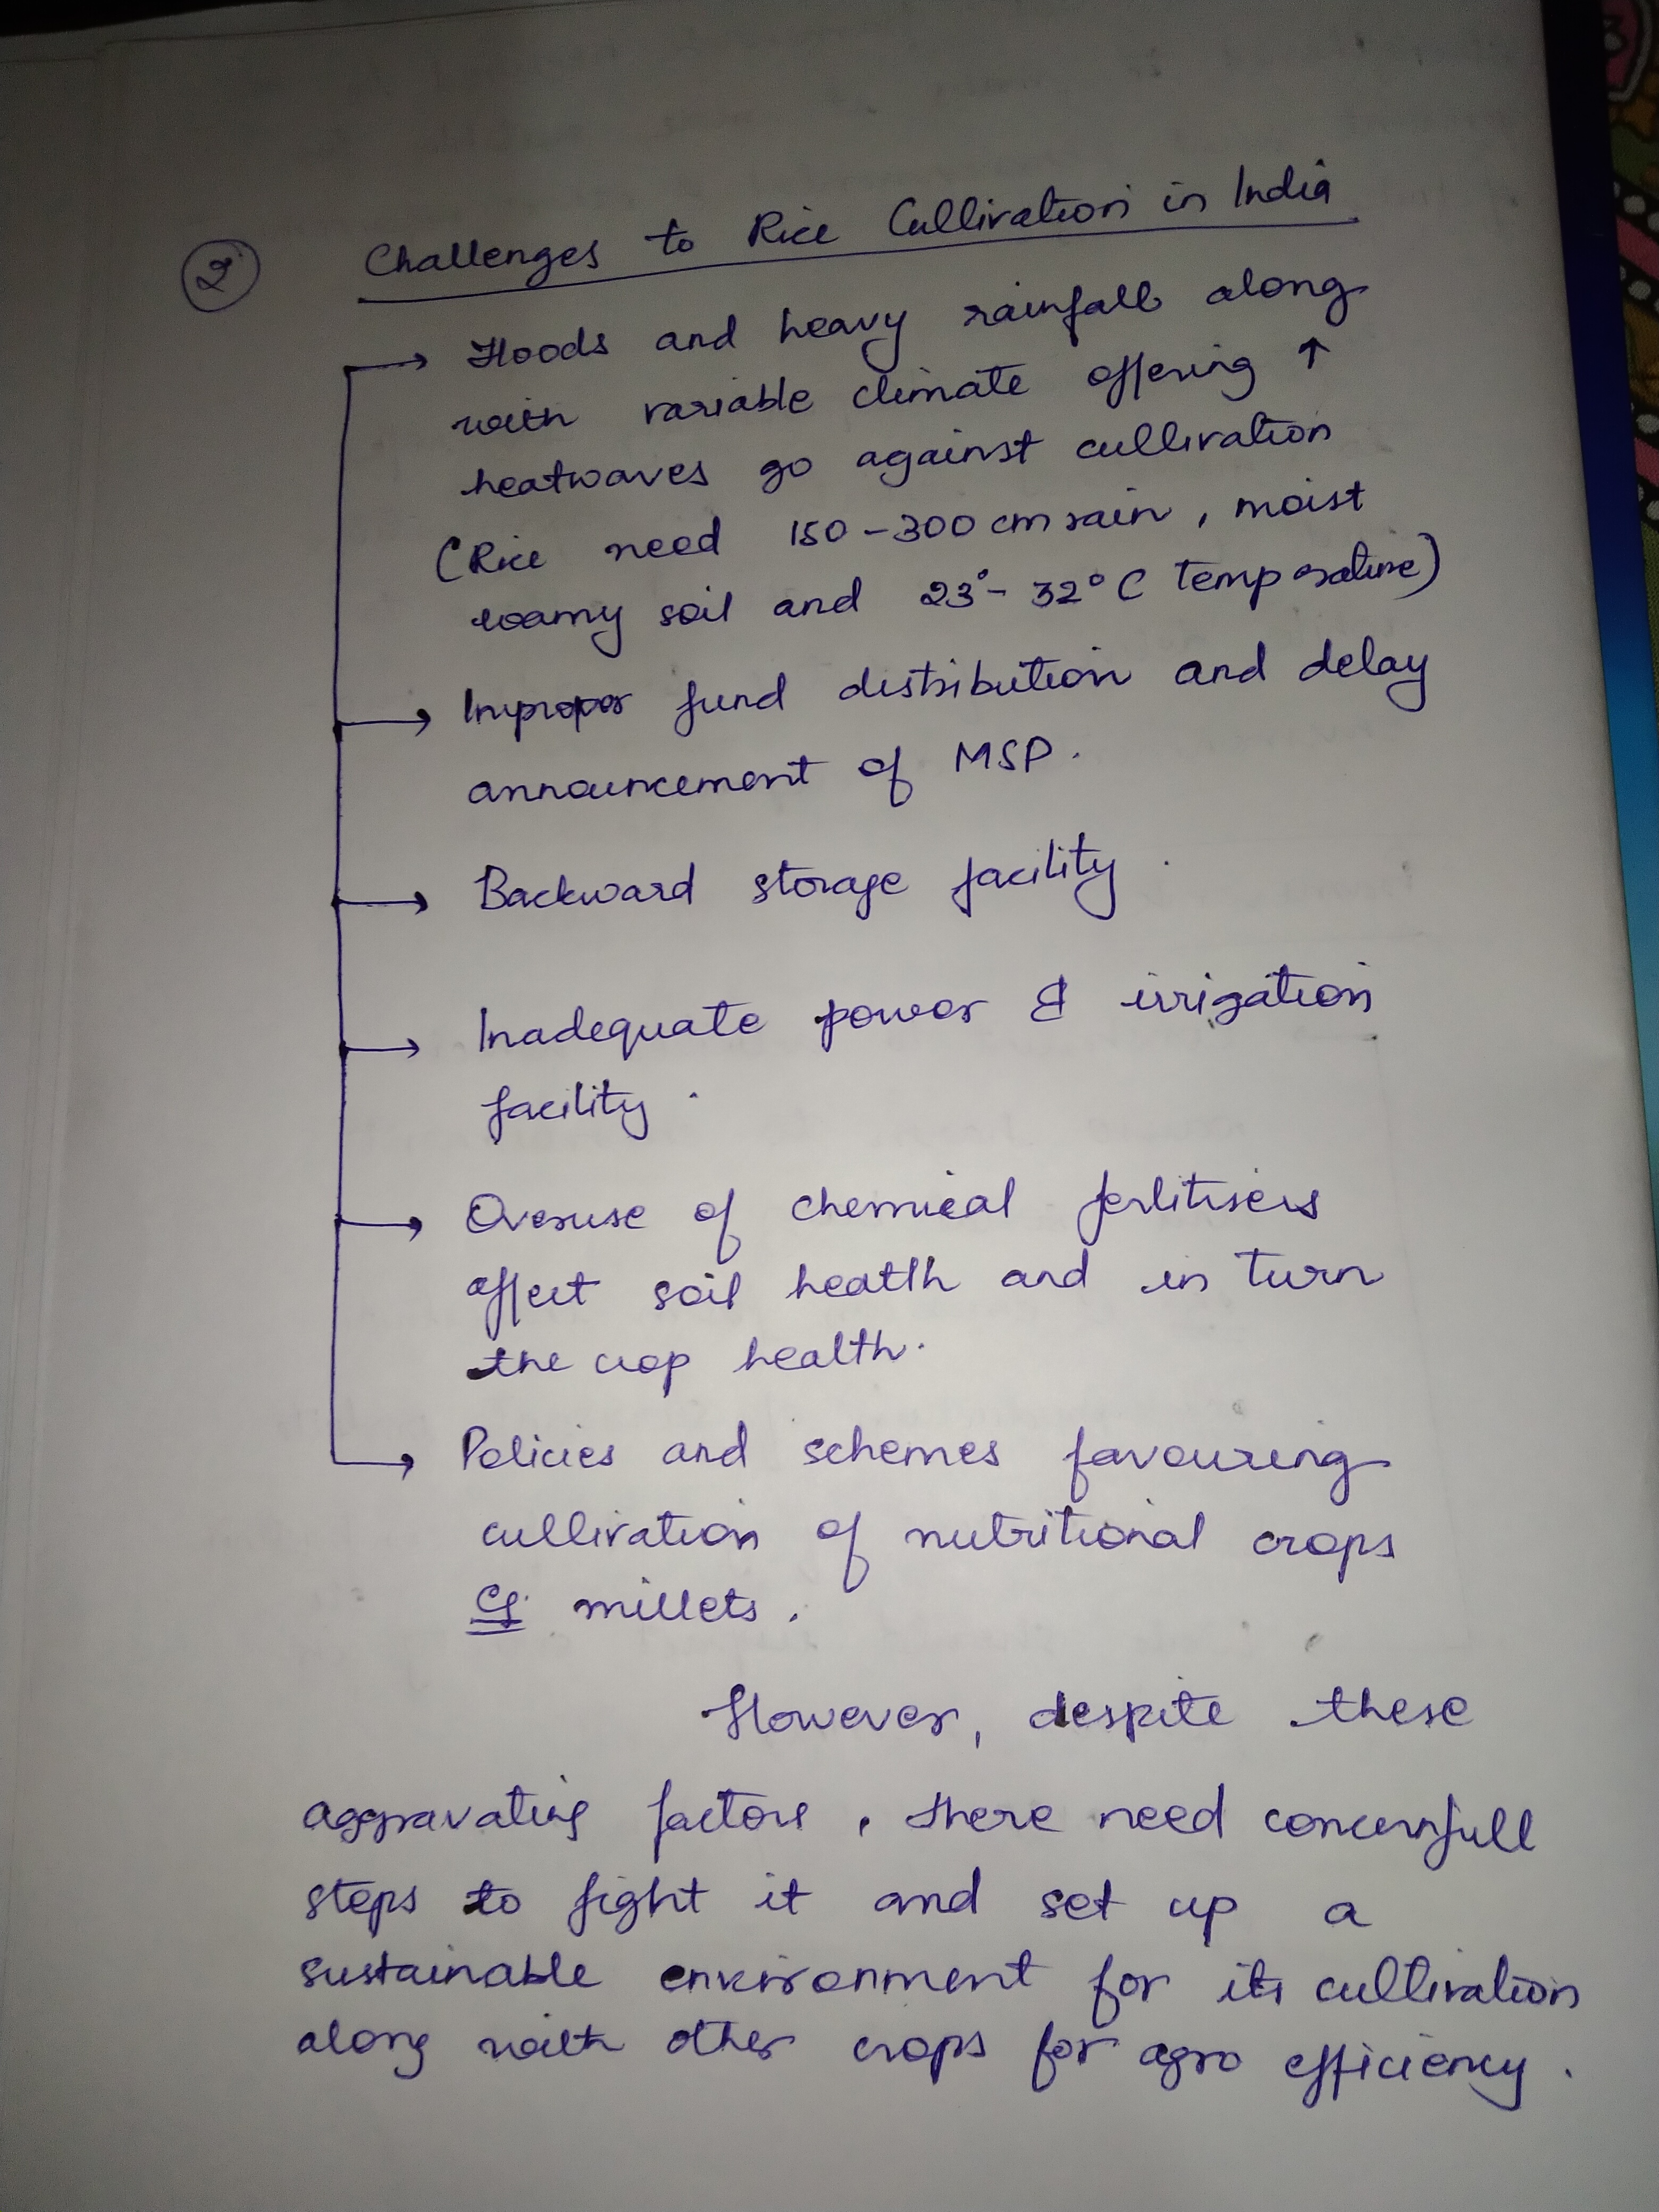 2 Challenges to Rice Cultivation in India
→ Floods and heavy rainfall along
with variable climate offering ↑
heatwaves go against cultivation
(Rice need 150-300 cm rain, moist
loamy soil and 23°- 32°C temperature)
→ Improper fund distribution and delay
announcement of MSP.
→ Backward storage facility.
→ Inadequate power & irrigation
facility.
→ Overuse of chemical fertilisers
affect soil health and in turn
the crop health.
→ Policies and schemes favouring
cultivation of nutritional crops
eg. millets.
However, despite these
aggravating factors, there need concernfull
steps to fight it and set up a
sustainable environment for its cultivation
along with other crops for agro efficiency.